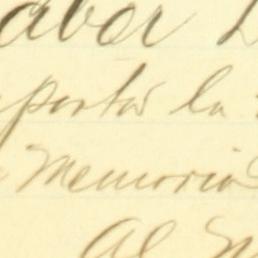 abor
portar la
Memoria
al